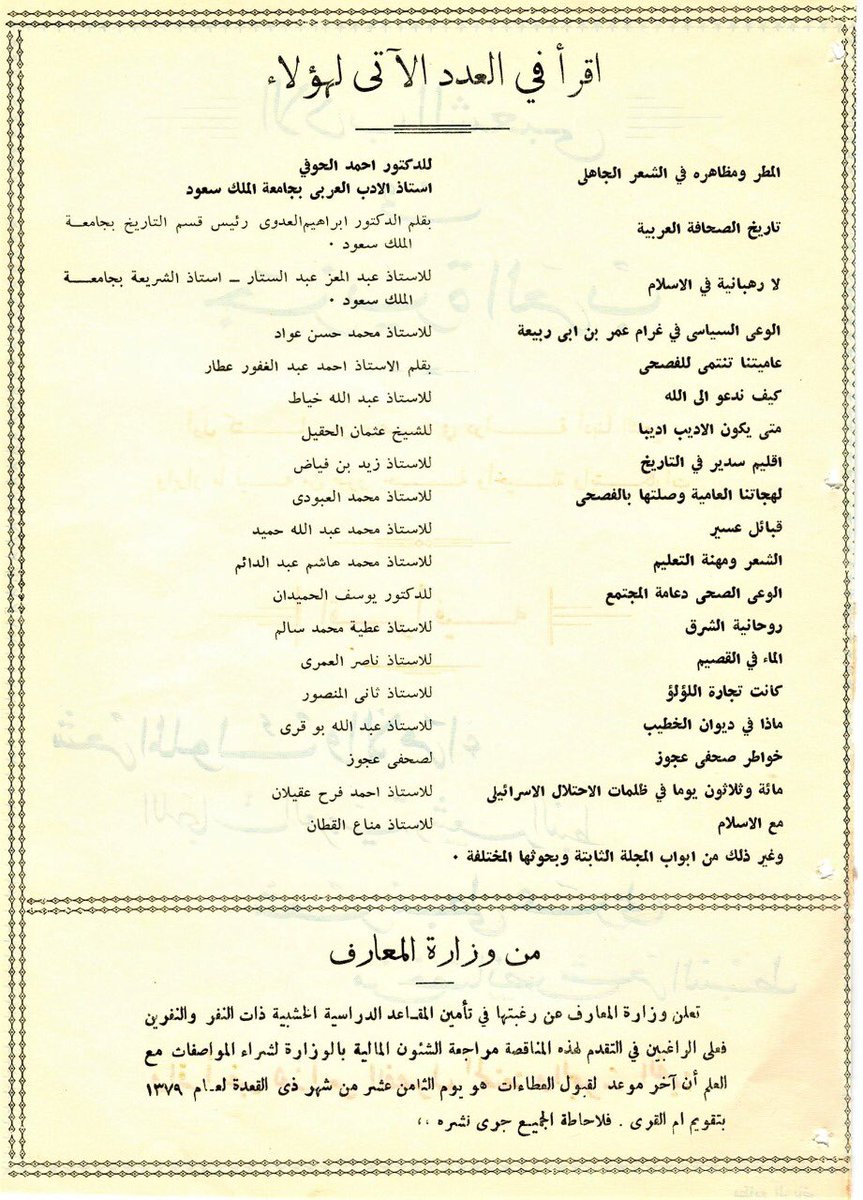 اقرأ في العدد الآتى لهؤلاء
المطر ومظاهره في الشعر الجاهلى للدكتور احمد الحوفي
استاذ الادب العربى بجامعة الملك سعود
تاريخ الصحافة العربية بقلم الدكتور ابراهيم العدوى رئيس قسم التاريخ بجامعة
الملك سعود ٠
لا رهبانية في الاسلام للاستاذ عبد المعز عبد الستار ــ استاذ الشريعة بجامعة
الملك سعود ٠
الوعى السياسى في غرام عمر بن ابى ربيعة للاستاذ محمد حسن عواد
عاميتنا تنتمى للفصحى بقلم الاستاذ احمد عبد الغفور عطار
كيف ندعو الى الله للاستاذ عبد الله خياط
متى يكون الاديب اديبا للشيخ عثمان الحقيل
اقليم سدير في التاريخ للاستاذ زيد بن فياض
لهجاتنا العامية وصلتها بالفصحى للاستاذ محمد العبودى
قبائل عسير للاستاذ محمد عبد الله حميد
الشعر ومهنة التعليم للاستاذ محمد هاشم عبد الدائم
الوعى الصحى دعامة المجتمع للدكتور يوسف الحميدان
روحانية الشرق للاستاذ عطية محمد سالم
الماء في القصيم للاستاذ ناصر العمرى
كانت تجارة اللؤلؤ للاستاذ ثانى المنصور
ماذا في ديوان الخطيب للاستاذ عبد الله بو قرى
خواطر صحفى عجوز لصحفى عجوز
مائة وثلاثون يوما في ظلمات الاحتلال الاسرائيلى للاستاذ احمد فرح عقيلان
مع الاسلام للاستاذ مناع القطان
وغير ذلك من ابواب المجلة الثابتة وبحوثها المختلفة ٠
من وزارة المعارف
تعلن وزارة المعارف عن رغبتها في تأمين المقاعد الدراسية الخشبية ذات النفر والنفرين
فعلى الراغبين في التقدم لهذه المناقصة مراجعة الشئون المالية بالوزارة لشراء المواصفات مع
العلم أن آخر موعد لقبول العطاءات هو يوم الثامن عشر من شهر ذى القعدة لعام ١٣٧٩
بتقويم ام القرى . فلاحاطة الجميع جرى نشره ،،